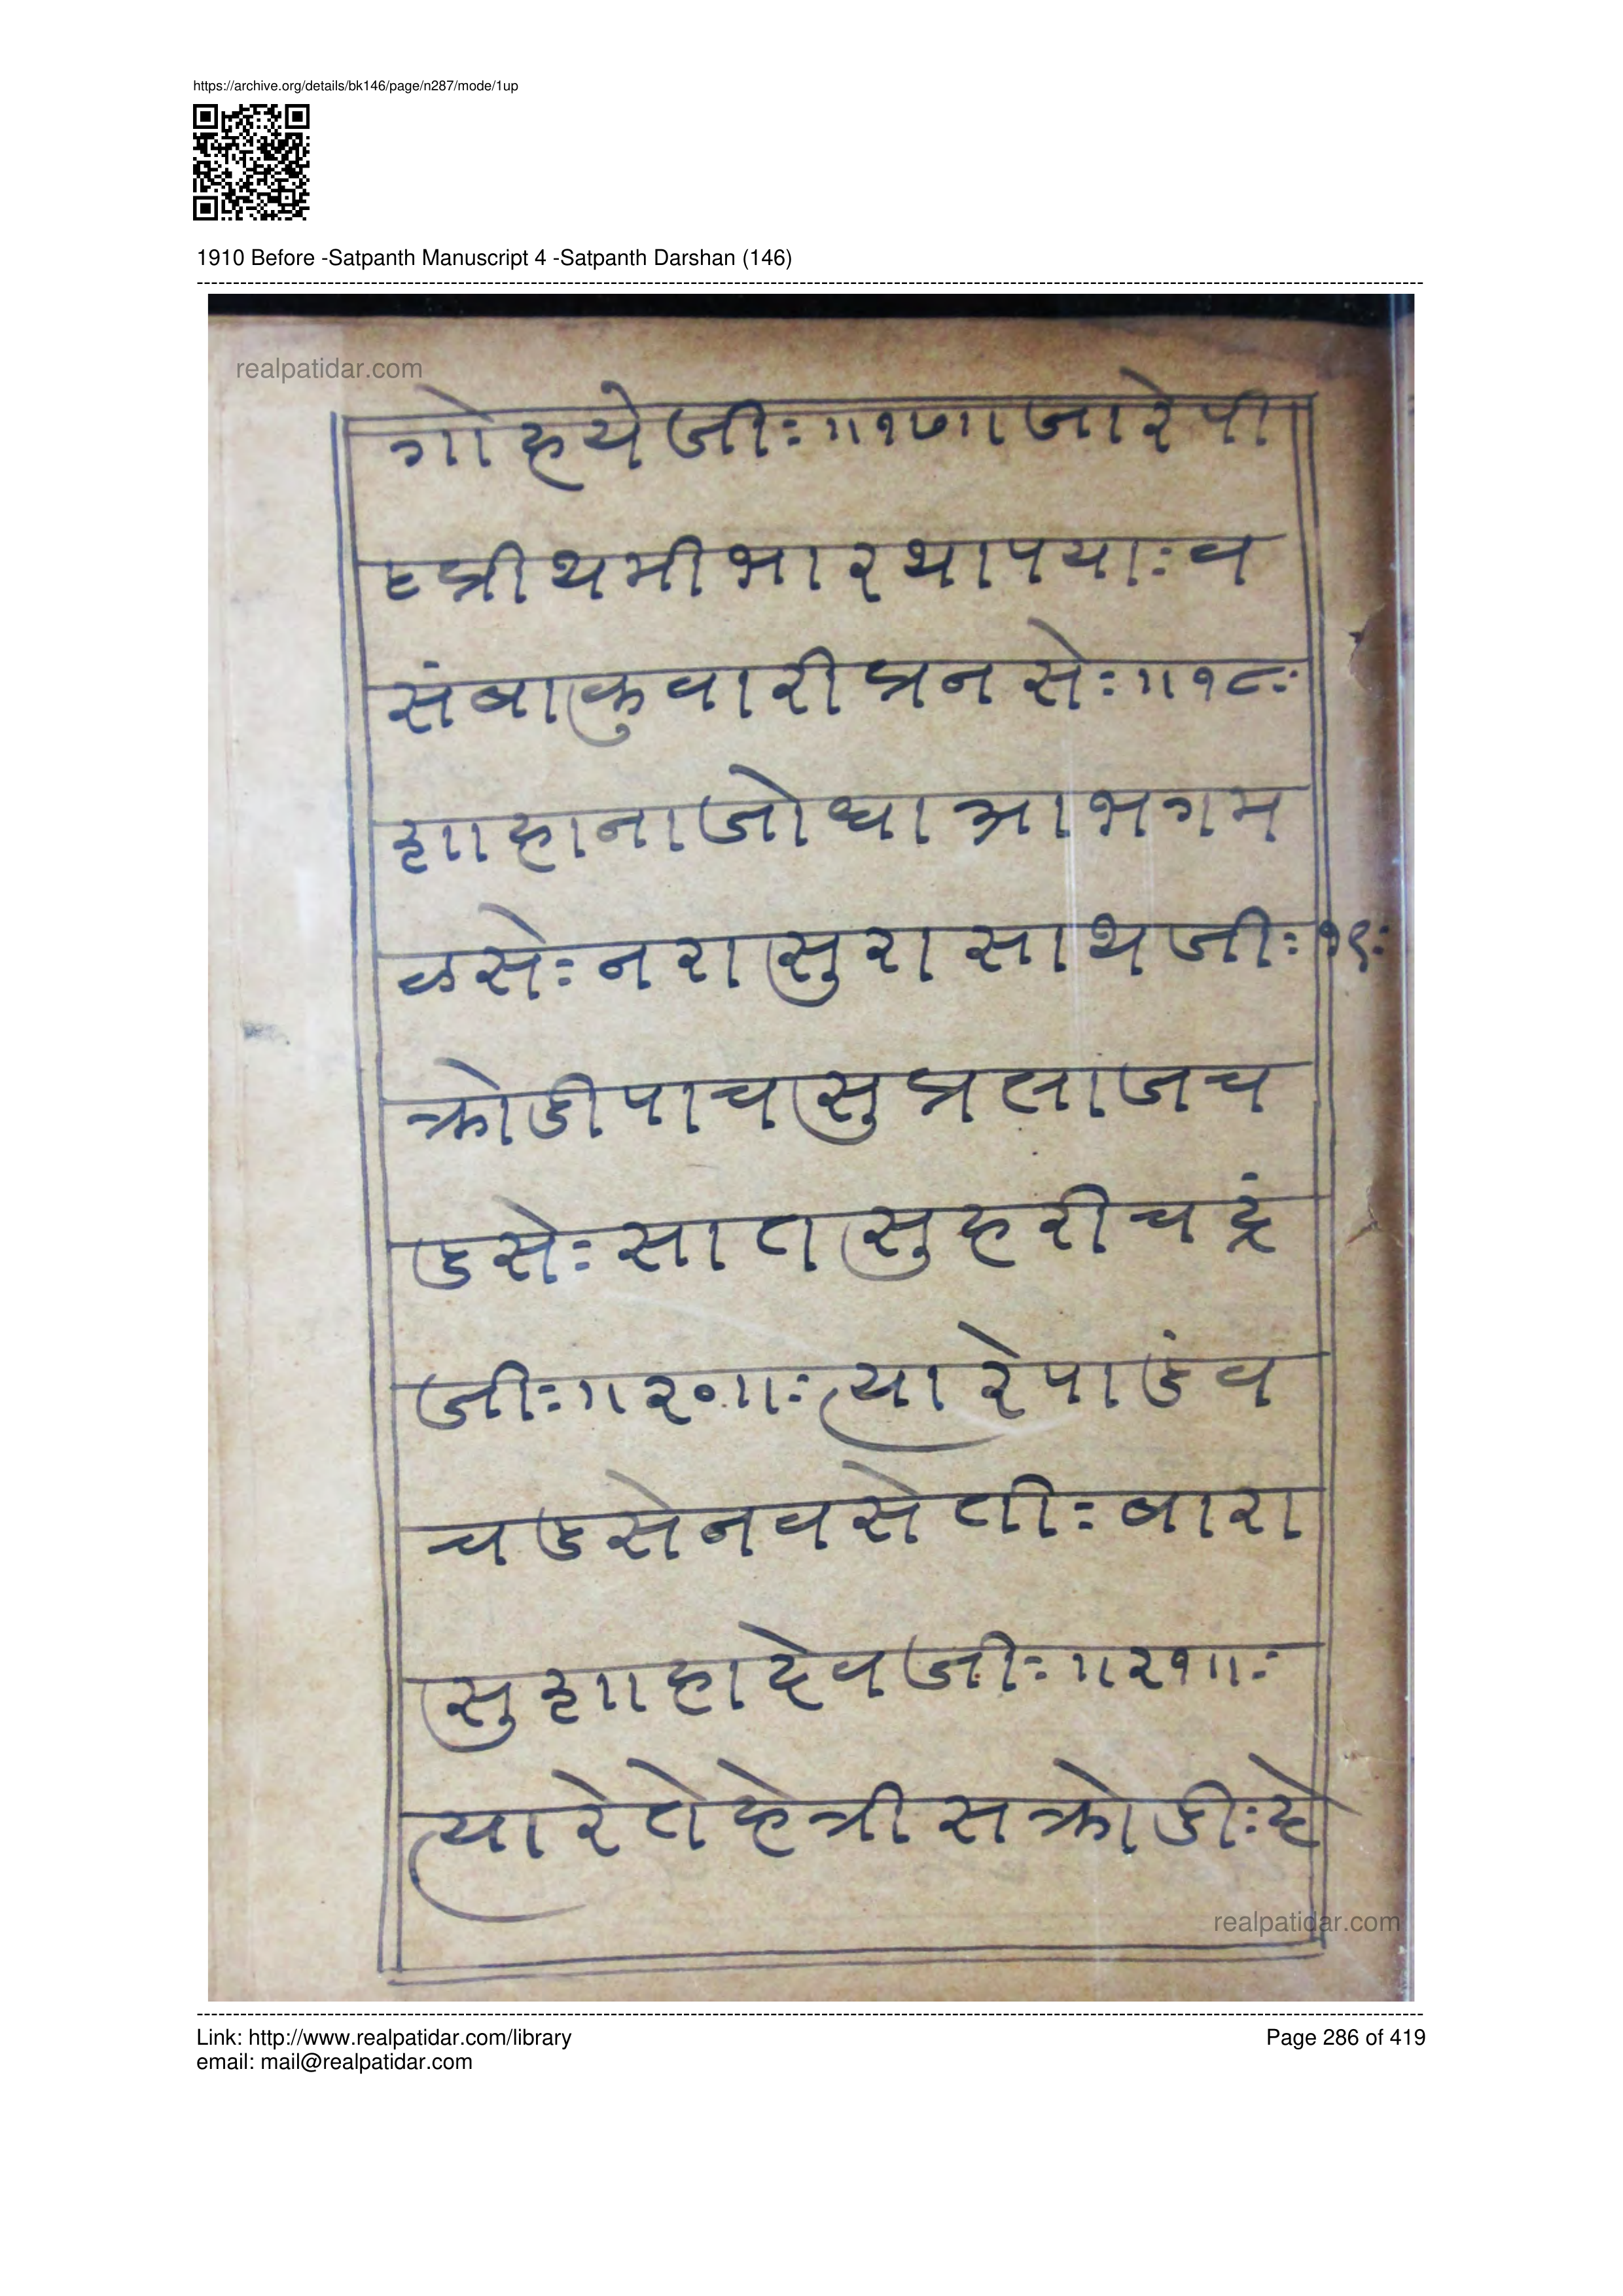 https://archive.org/details/bk146/page/n287/mode/1up
1910 Before -Satpanth Manuscript 4 -Satpanth Darshan (146)
realpatidar.com
गो हये जीः ॥१७॥ जारे पी
प्रीथमी भार थापयाः व
संबा कुवारी प्रनसेः ॥१८ः
शाहाना जोधा आभ गम
ळसेः नरा सुरा साथ जीः १९ः
क्रोडी पाच सु प्रलाज च
डसेः सात सु हरीचद्रं
जीः ॥२०॥ः त्यारे पाडंव
चडसे नवसे तीः बारा
सु शाहा देव जीः ॥२१॥ः
त्यारे तेहेत्रीस क्रोडीः हे
realpatidar.com
Link: http://www.realpatidar.com/library
Page 286 of 419
email: mail@realpatidar.com